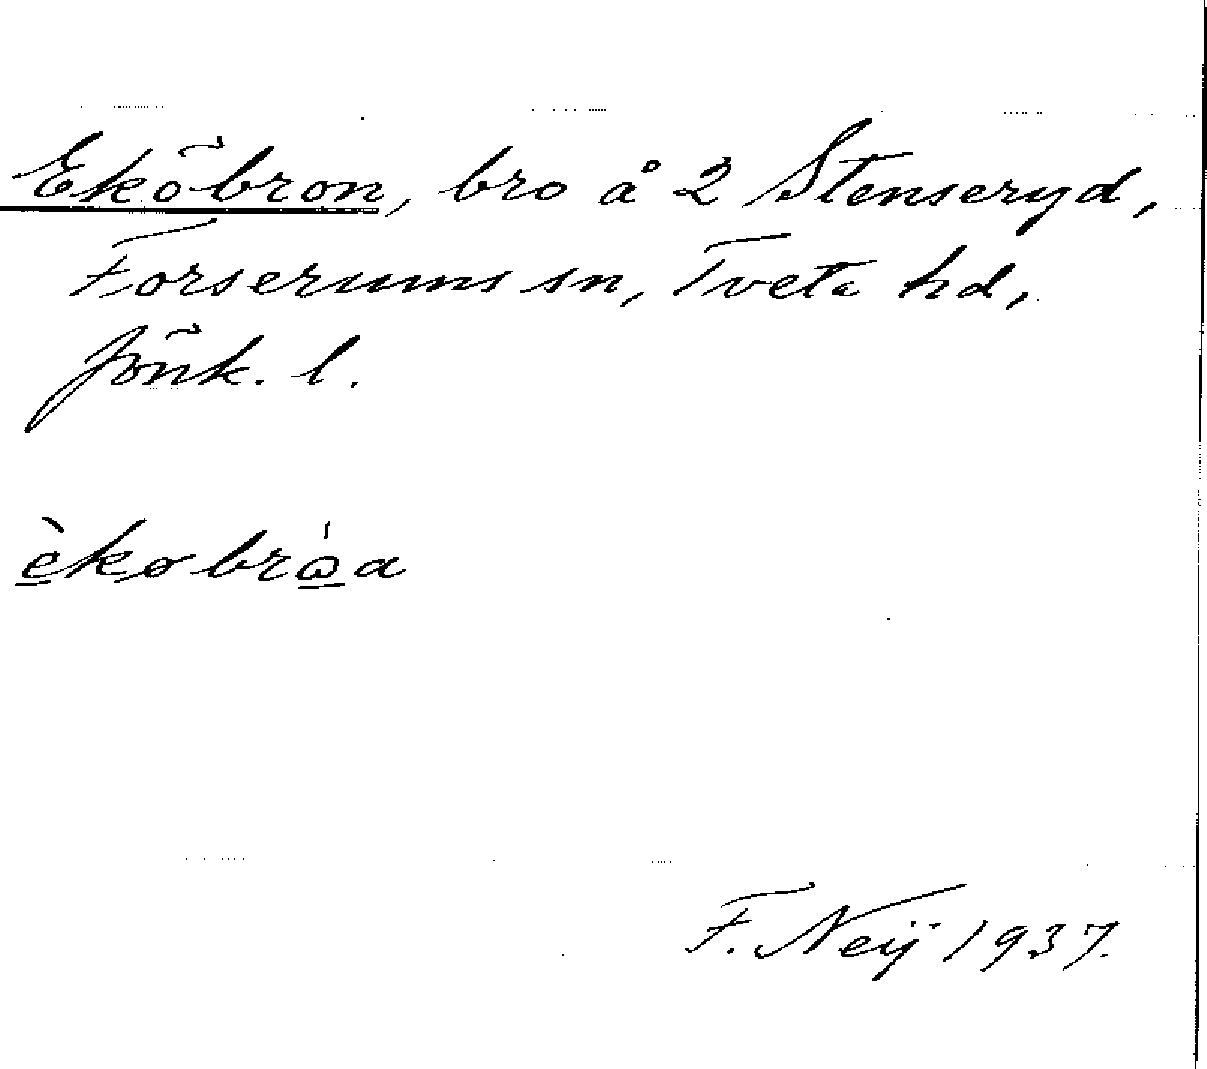 Eköbron, bro å 2 Stenseryd,
Forserums sn, Tveta hd,
Jönk. l.
èkøbrω̲̍a
F. Neij 1937.